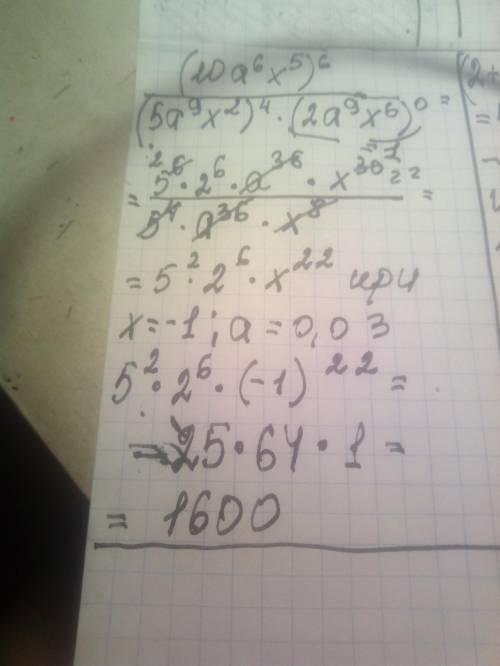 (10a⁶x⁵)⁶
(5a⁹x²)⁴ · (2a⁹x⁶)⁰ =
= 1
= 5⁶ · 2⁶ · a³⁶ · x³⁰
5⁴ · a³⁶ · x⁸ =
= 5² · 2⁶ · x²² при
x = -1 ; a = 0,03
5² · 2⁶ · (-1)²² =
= 25 · 64 · 1 =
= 1600
(2+
=